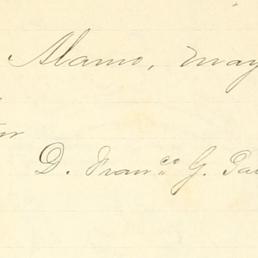 Alamo, May
D. Fran.co G.